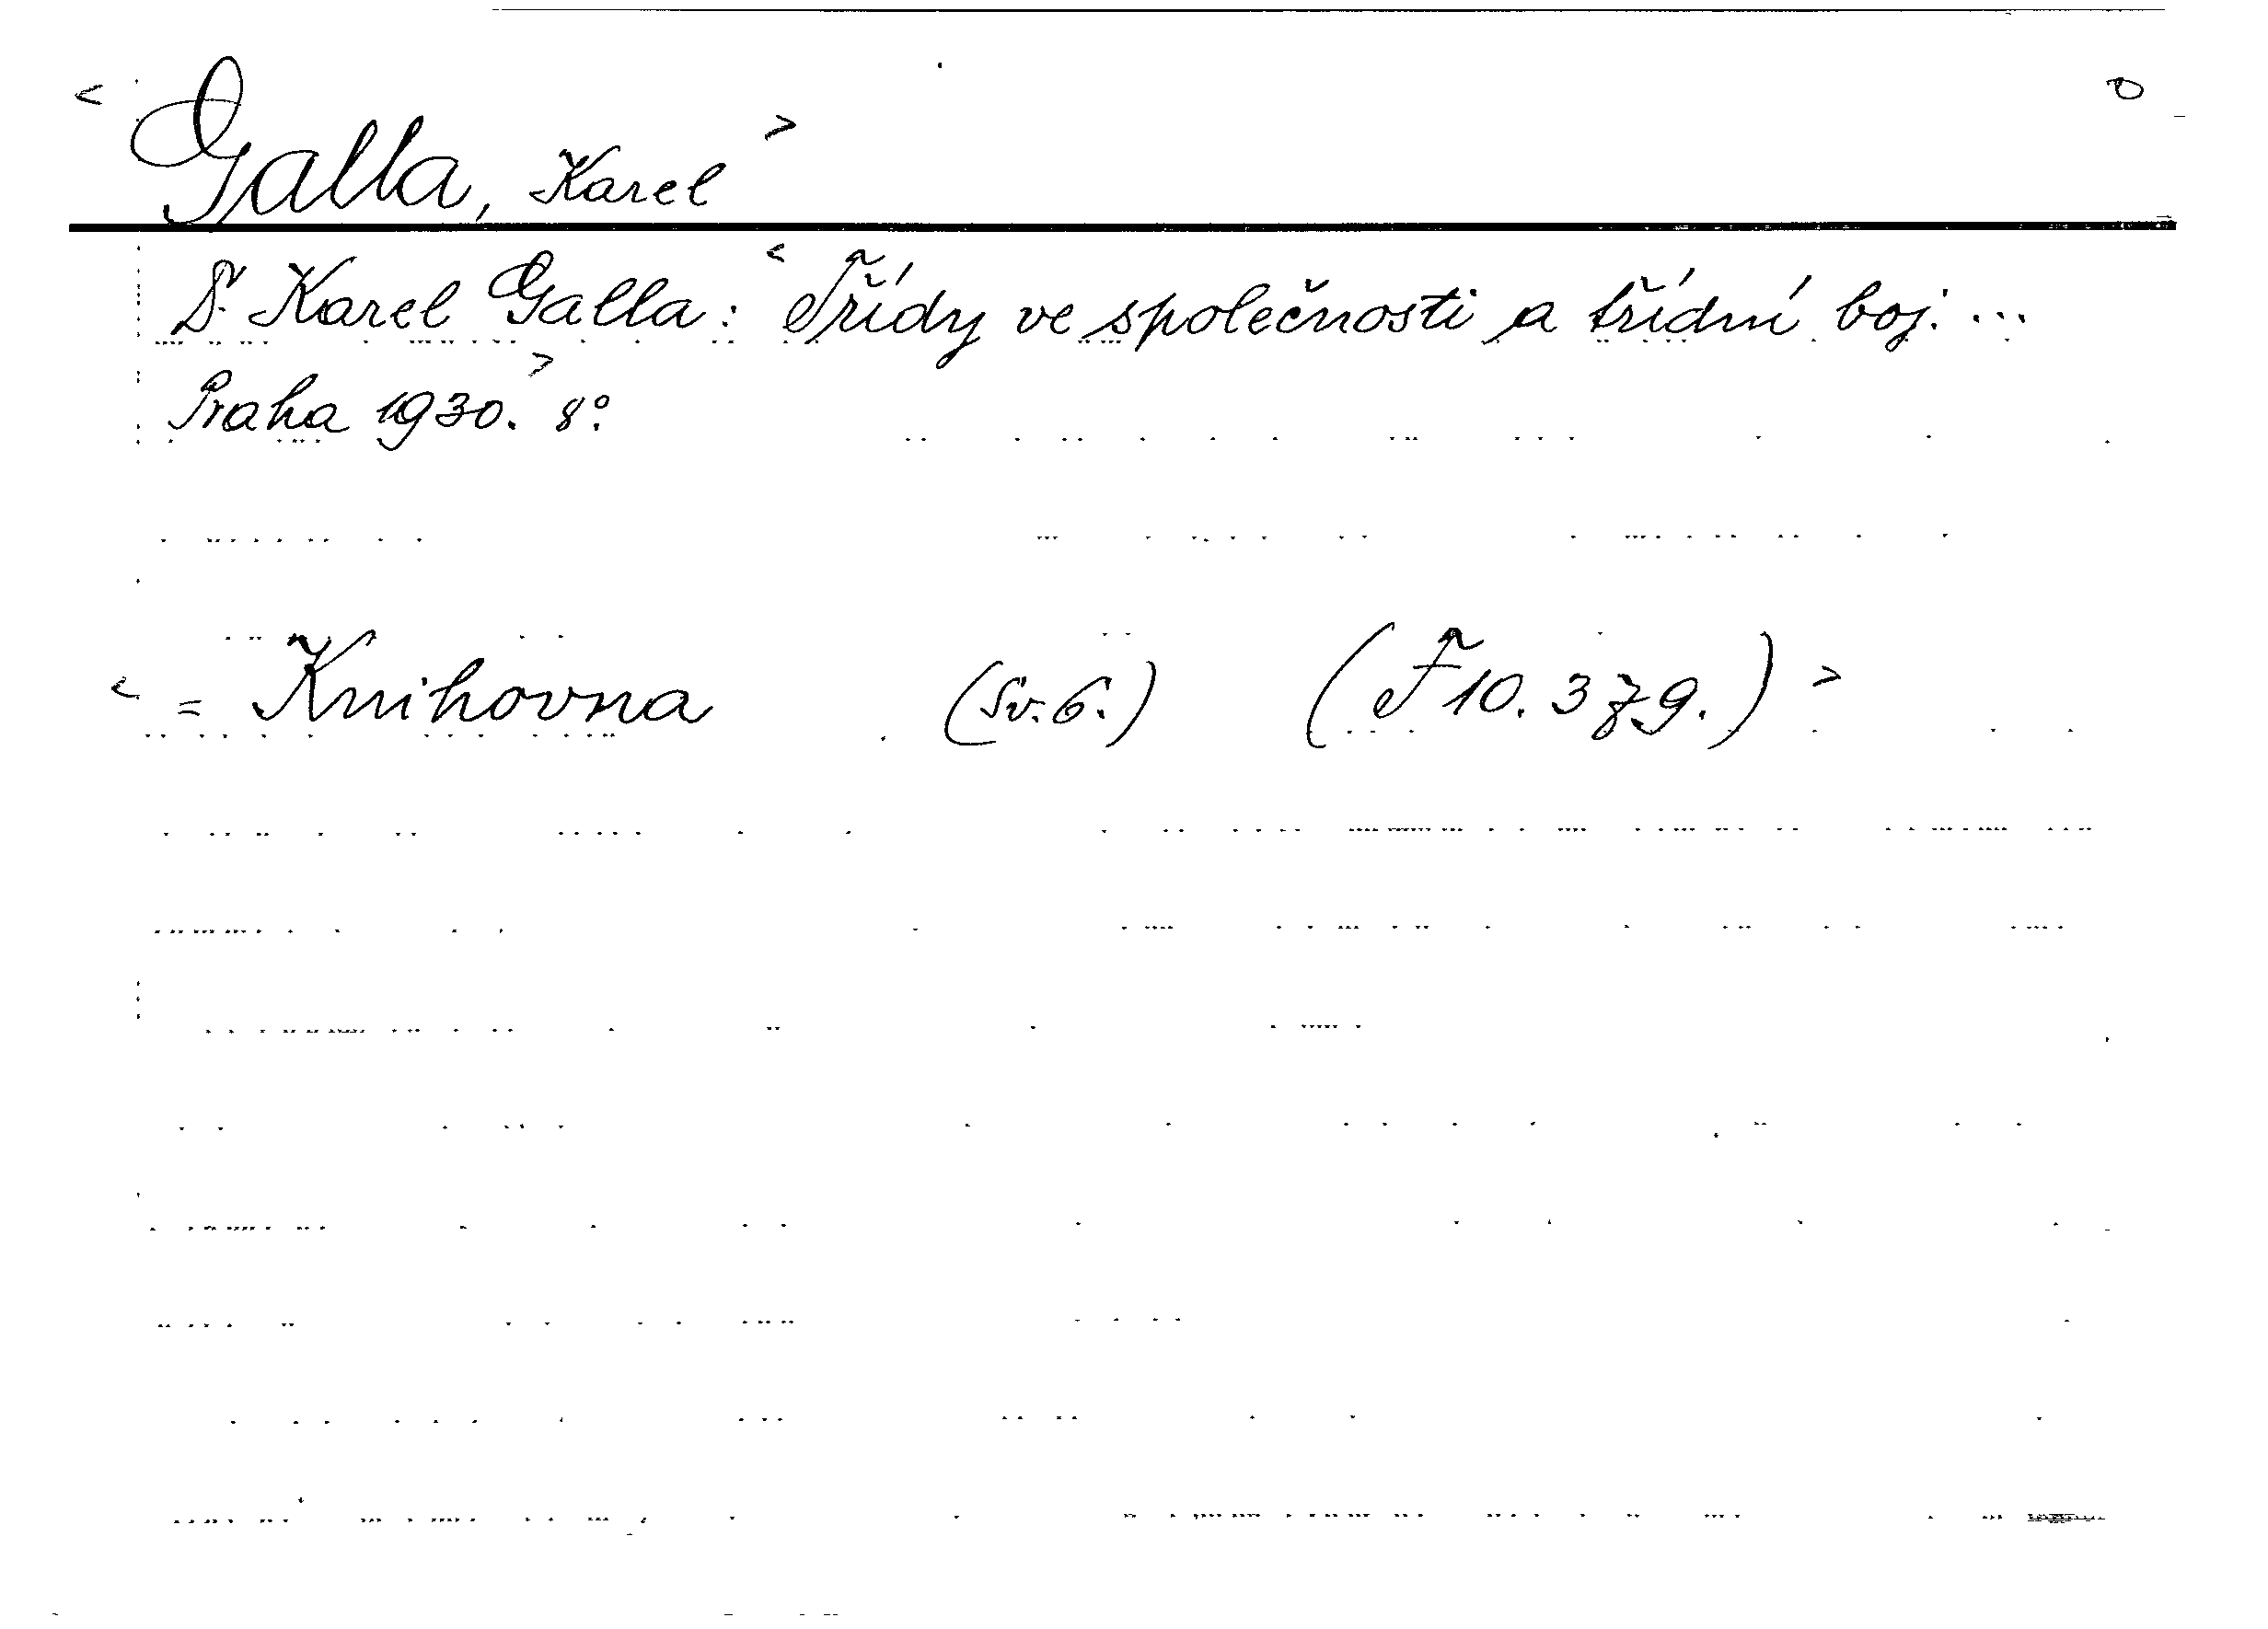 < Galla, Karel >
Dr. Karel Galla: < Třídy ve společnosti a třídní boj. ...
Praha 1930. > 8°.
< = Knihovna (Sv. 6.) (F 10.379.) >